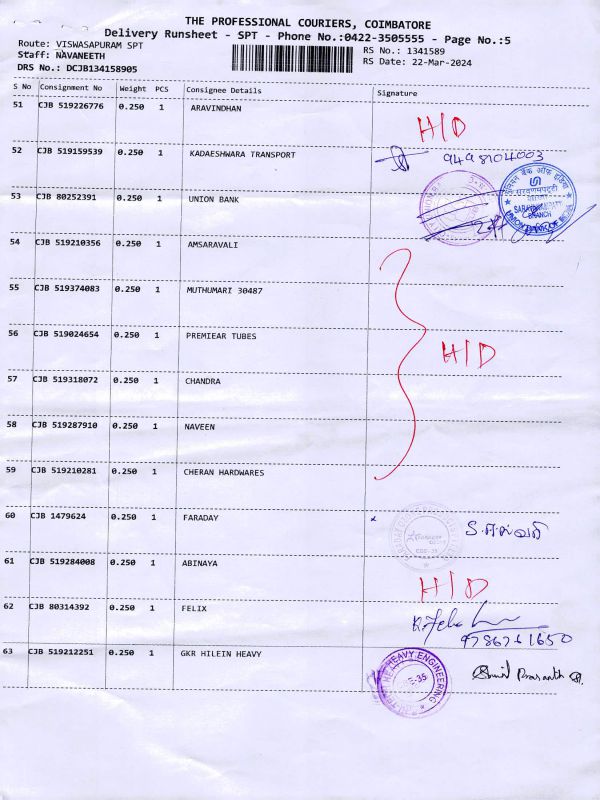 THE PROFESSIONAL COURIERS, COIMBATORE
Delivery Runsheet - SPT - Phone No.:0422-3505555 - Page No.:5
Route: VISWASAPURAM SPT
Staff: NAVANEETH
DRS No.: DCJB134158905
RS No.: 1341589
RS Date: 22-Mar-2024
S No Consignment No Weight PCS Consignee Details Signature
51 CJB 519226776 0.250 1 ARAVINDHAN H/D
52 CJB 519159539 0.250 1 KADAESHWARA TRANSPORT 9498104003
53 CJB 80252391 0.250 1 UNION BANK
यूनियन बैंक ऑफ इंडिया
BRANCH
UNION BANK OF INDIA
54 CJB 519210356 0.250 1 AMSARAVALI
55 CJB 519374083 0.250 1 MUTHUMARI 30487
56 CJB 519024654 0.250 1 PREMIEAR TUBES H/D
57 CJB 519318072 0.250 1 CHANDRA
58 CJB 519287910 0.250 1 NAVEEN
59 CJB 519210281 0.250 1 CHERAN HARDWARES
60 CJB 1479624 0.250 1 FARADAY
61 CJB 519284008 0.250 1 ABINAYA H/D
62 CJB 80314392 0.250 1 FELIX
63 CJB 519212251 0.250 1 GKR HILEIN HEAVY
HEAVY ENGINEERING